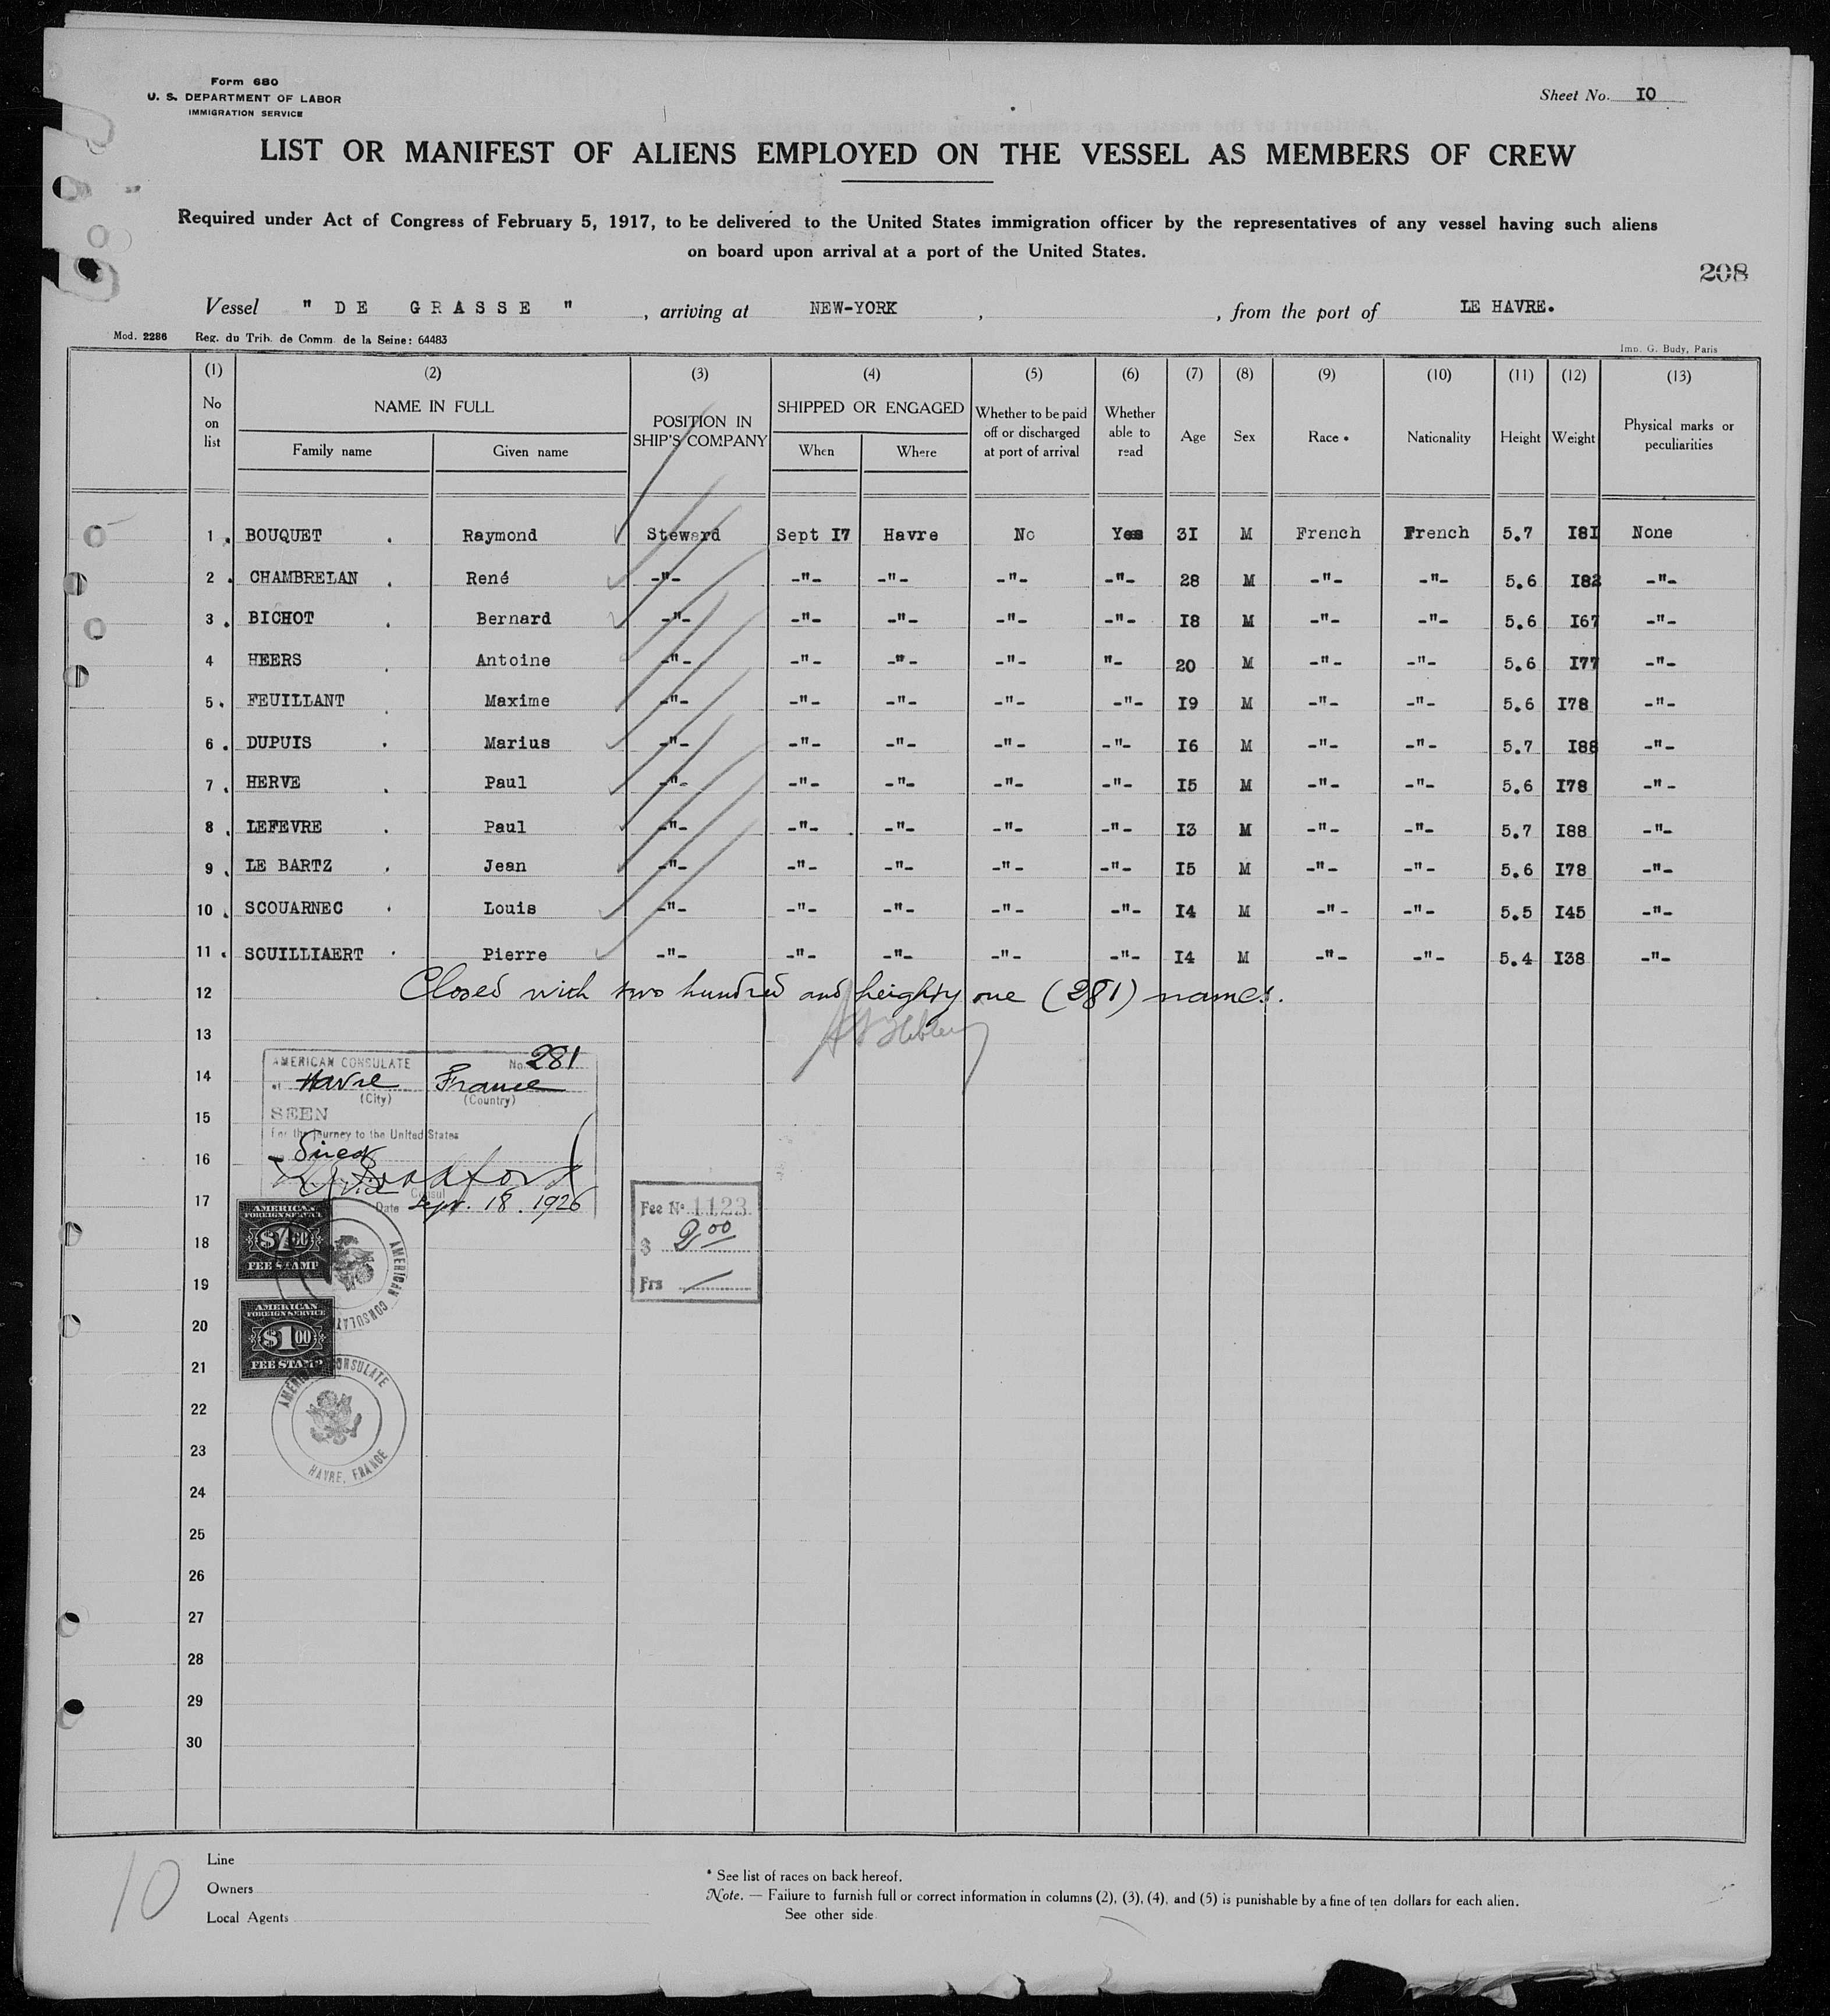 Form 680
U. S. DEPARTMENT OF LABOR
IMMIGRATION SERVICE
Sheet No. I0
LIST OR MANIFEST OF ALIENS EMPLOYED ON THE VESSEL AS MEMBERS OF CREW
Required under Act of Congress of February 5, 1917, to be delivered to the United States immigration officer by the representatives of any vessel having such aliens
on board upon arrival at a port of the United States.
208
Vessel " DE GRASSE " , arriving at NEW-YORK , , from the port of LE HAVRE.
Mod. 2286 Reg. du Trib. de Comm. de la Seine: 64483 Imp. G. Budy, Paris
(1) (2) (3) (4) (5) (6) (7) (8) (9) (10) (11) (12) (13)
No on list NAME IN FULL Family name Given name POSITION IN SHIP'S COMPANY SHIPPED OR ENGAGED When Where Whether to be paid off or discharged at port of arrival Whether able to read Age Sex Race * Nationality Height Weight Physical marks or peculiarities
1 . BOUQUET . Raymond Steward Sept I7 Havre No Yes 3I M French French 5.7 I8I None
2 . CHAMBRELAN . René -"- -"- -"- -"- -"- 28 M -"- -"- 5.6 I82 -"-
3 . BICHOT . Bernard -"- -"- -"- -"- -"- I8 M -"- -"- 5.6 I67 -"-
4 HEERS . Antoine -"- -"- -"- -"- "- 20 M -"- -"- 5.6 I77 -"-
5 . FEUILLANT . Maxime -"- -"- -"- -"- -"- I9 M -"- -"- 5.6 I78 -"-
6 . DUPUIS . Marius -"- -"- -"- -"- -"- I6 M -"- -"- 5.7 I88 -"-
7 . HERVE . Paul -"- -"- -"- -"- -"- I5 M -"- -"- 5.6 I78 -"-
8 . LEFEVRE . Paul -"- -"- -"- -"- -"- I3 M -"- -"- 5.7 I88 -"-
9 . LE BARTZ . Jean -"- -"- -"- -"- -"- I5 M -"- -"- 5.6 I78 -"-
10 . SCOUARNEC . Louis -"- -"- -"- -"- -"- I4 M -"- -"- 5.5 I45 -"-
11 . SOUILLIAERT . Pierre -"- -"- -"- -"- -"- I4 M -"- -"- 5.4 I38 -"-
12 Closed with two hundred and heighty one (281) names.
13
14
15
16
17
18
19
20
21
22
23
24
25
26
27
28
29
30
AMERICAN CONSULATE No. 281
at Havre France
(City) (Country)
SEEN
For the journey to the United States
Consul
Date Sept. 18. 1926
Fee No 1123
$ 2 00
Frs
AMERICAN
FOREIGN SERVICE
$1 00
FEE STAMP
AMERICAN CONSULATE
AMERICAN
FOREIGN SERVICE
$1 00
FEE STAMP
AMERICAN CONSULATE
HAVRE, FRANCE
10
Line
Owners
Local Agents
* See list of races on back hereof.
Note. — Failure to furnish full or correct information in columns (2), (3), (4), and (5) is punishable by a fine of ten dollars for each alien.
See other side.